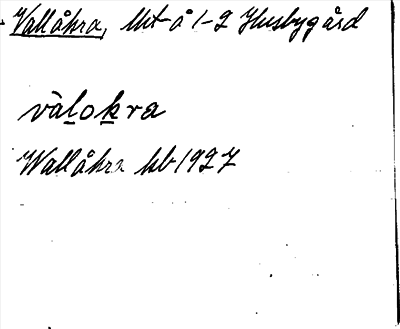 Vallåkra, Mt å 1-2 Husbygård
vàlokra
Wallåkra kb 1927